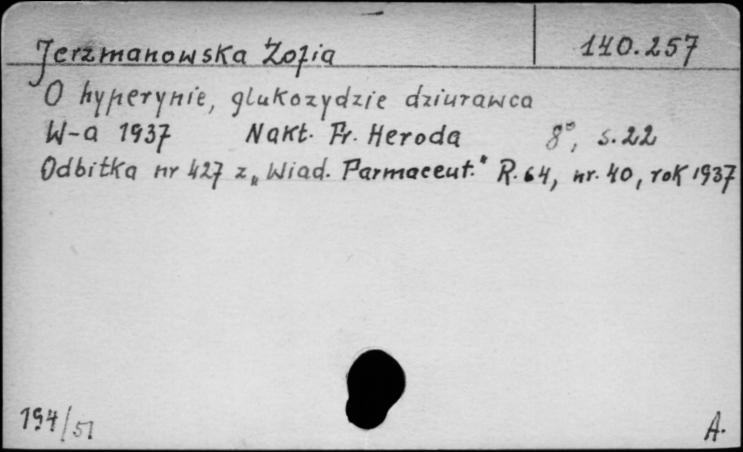 Jerzmanowska Zofia 140.257
O hyperynie, glukozydzie dziurawca
W-a 1937 Nakt. Fr. Heroda 8°, s. 22
Odbitka nr 427 z „Wiad. Farmaceut." R. 64, nr. 40, rok 1937
194/51 A.